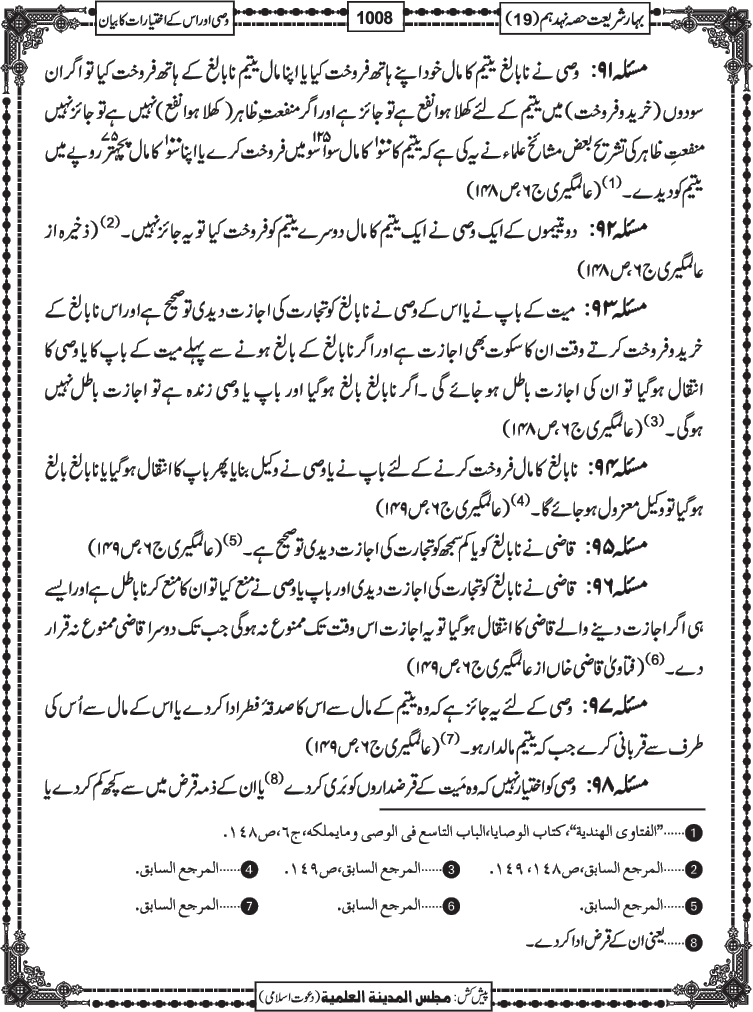 بہار شریعت حصہ نہد ہم (19)
1008
وصی اور اس کے اختیارات کا بیان
مسئلہ ۹۱: وصی نے نابالغ یتیم کا مال خود اپنے ہاتھ فروخت کیا یا اپنا مال یتیم نابالغ کے ہاتھ فروخت کیا تو اگر ان
سودوں (خرید و فروخت) میں یتیم کے لئے کھلا ہوا نفع ہے تو جائز ہے اور اگر منفعتِ ظاہر (کھلا ہوا نفع) نہیں ہے تو جائز نہیں
منفعتِ ظاہر کی تشریح بعض مشائخ علماء نے یہ کی ہے کہ یتیم کا سو۱۰۰ کا مال سوا سو۱۲۵ میں فروخت کرے یا اپنا سو۱۰۰ کا مال پچھتر۷۵ روپے میں
یتیم کو دیدے۔(1) (عالمگیری ج۶،ص۱۴۸)
مسئلہ ۹۲: دو یتیموں کے ایک وصی نے ایک یتیم کا مال دوسرے یتیم کو فروخت کیا تو یہ جائز نہیں۔(2) (ذخیرہ از
عالمگیری ج۶،ص۱۴۸)
مسئلہ ۹۳: میت کے باپ نے یا اس کے وصی نے نابالغ کو تجارت کی اجازت دیدی تو صحیح ہے اور اس نابالغ کے
خرید و فروخت کرتے وقت ان کا سکوت بھی اجازت ہے اور اگر نابالغ کے بالغ ہونے سے پہلے میت کے باپ کا یا وصی کا
انتقال ہوگیا تو ان کی اجازت باطل ہو جائے گی ۔اگر نابالغ بالغ ہوگیا اور باپ یا وصی زندہ ہے تو اجازت باطل نہیں
ہوگی۔(3) (عالمگیری ج۶،ص۱۴۸)
مسئلہ ۹۴: نابالغ کا مال فروخت کرنے کے لئے باپ نے یا وصی نے وکیل بنایا پھر باپ کا انتقال ہوگیا یا نابالغ بالغ
ہوگیا تو وکیل معزول ہو جائے گا۔(4) (عالمگیری ج۶،ص۱۴۹)
مسئلہ ۹۵: قاضی نے نابالغ کو یا کم سمجھ کو تجارت کی اجازت دیدی تو صحیح ہے۔(5) (عالمگیری ج۶،ص۱۴۹)
مسئلہ ۹۶: قاضی نے نابالغ کو تجارت کی اجازت دیدی اور باپ یا وصی نے منع کیا تو ان کا منع کرنا باطل ہے اور ایسے
ہی اگر اجازت دینے والے قاضی کا انتقال ہوگیا تو یہ اجازت اس وقت تک ممنوع نہ ہوگی جب تک دوسرا قاضی ممنوع نہ قرار
دے۔(6) (فتاویٰ قاضی خاں از عالمگیری ج۶،ص۱۴۹)
مسئلہ ۹۷: وصی کے لئے یہ جائز ہے کہ وہ یتیم کے مال سے اس کا صدقۂ فطر ادا کردے یا اس کے مال سے اُس کی
طرف سے قربانی کرے جب کہ یتیم مالدار ہو۔(7) (عالمگیری ج۶،ص۱۴۹)
مسئلہ ۹۸: وصی کو اختیار نہیں کہ وہ مَیت کے قرضداروں کو بَری کردے(8) یا ان کے ذمہ قرض میں سے کچھ کم کردے یا
1......"الفتاوی الھندیة"، کتاب الوصایا،الباب التاسع فی الوصی ومایملکه،ج٦،ص١٤٨.
2......المرجع السابق،ص١٤٨، ١٤٩. 3......المرجع السابق،ص١٤٩. 4......المرجع السابق.
5......المرجع السابق. 6......المرجع السابق. 7......المرجع السابق.
8......یعنی ان کے قرض ادا کردے۔
پیش کش: مجلس المدینة العلمیة (دعوت اسلامی)